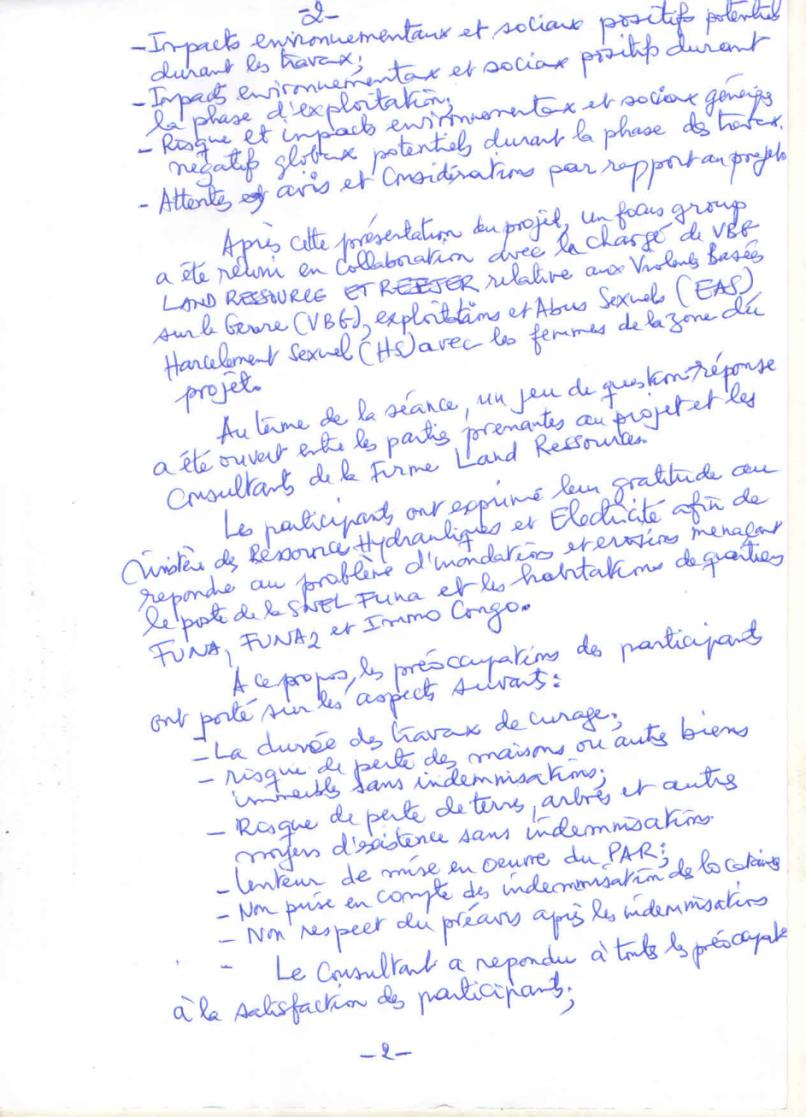 -2-
- Impacts environnementaux et sociaux positifs potentiels
durant les travaux;
- Impacts environnementaux et sociaux positifs durant
la phase d'exploitation;
- Risque et impacts environnementaux et sociaux génériques
négatifs globaux potentiels durant la phase des travaux.
- Attentes et avis et Considérations par rapport au projet
Après cette présentation du projet, un focus group
a été réuni en collaboration avec la chargé de VBG
LAND RESSOURCE relative aux Violences Basées
sur le Genre (VBG), exploitations et Abus Sexuels (EAS)
Harcelement Sexuel (HS) avec les femmes de la zone du
projet.
Au terme de la séance, un jeu de question-réponse
a été ouvert entre les partis prenantes au projet et les
Consultants de la Firme Land Ressources.
Les participants ont exprimé leur gratitude au
Ministère des Ressource Hydrauliques et Electricité afin de
repondre au problème d'inondations et erosions menaçant
le poste de la SNEL Funa et les habitations de quartiers
FUNA1, FUNA2 et Immo Congo.
A ce propos, les préoccupations des participants
ont porté sur les aspects suivants:
- La durée des travaux de curage;
- risque de perte des maisons ou autres biens
immeubles sans indemnisations;
- Risque de perte de terres, arbres et autres
moyens d'existence sans indemnisations.
- Lenteur de mise en oeuvre du PAR;
- Non prise en compte des indemnisation de locataires
- Non respect du préavis après les indemnisations
- Le Consultant a repondu à touts les préoccupate
à la satisfaction des participants;
-2-